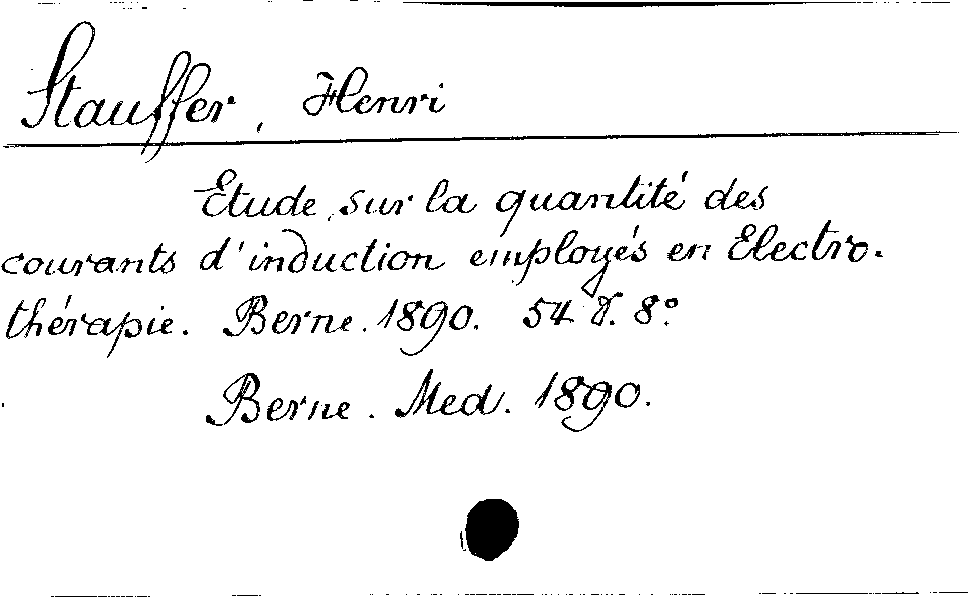 Stauffer, Henri
Etude sur la quantité des
courants d'induction employés en Electro-
thérapie. Berne. 1890. 54 S. 8°.
Berne. Med. 1890.